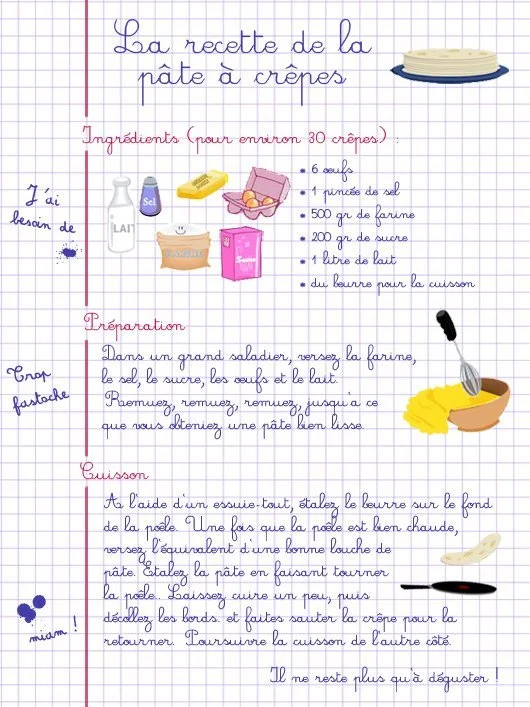 La recette de la
pâte à crêpes
Ingrédients (pour environ 30 crêpes) :
J'ai
besoin de
LAIT
Sel
Sucre
* 6 oeufs
* 1 pincée de sel
* 500 gr de farine
* 200 gr de sucre
* 1 litre de lait
* du beurre pour la cuisson
Préparation
Trop
fastoche
Dans un grand saladier, versez la farine,
le sel, le sucre, les oeufs et le lait.
Remuez, remuez, remuez, jusqu'a ce
que vous obteniez une pâte bien lisse.
Cuisson
A l'aide d'un essuie-tout, étalez le beurre sur le fond
de la poêle. Une fois que la poêle est bien chaude,
versez l'équivalent d'une bonne louche de
pâte. Etalez la pâte en faisant tourner
la poêle. Laissez cuire un peu, puis
décollez les bords. et faites sauter la crêpe pour la
retourner. Poursuivre la cuisson de l'autre côté.
miam !
Il ne reste plus qu'à déguster !